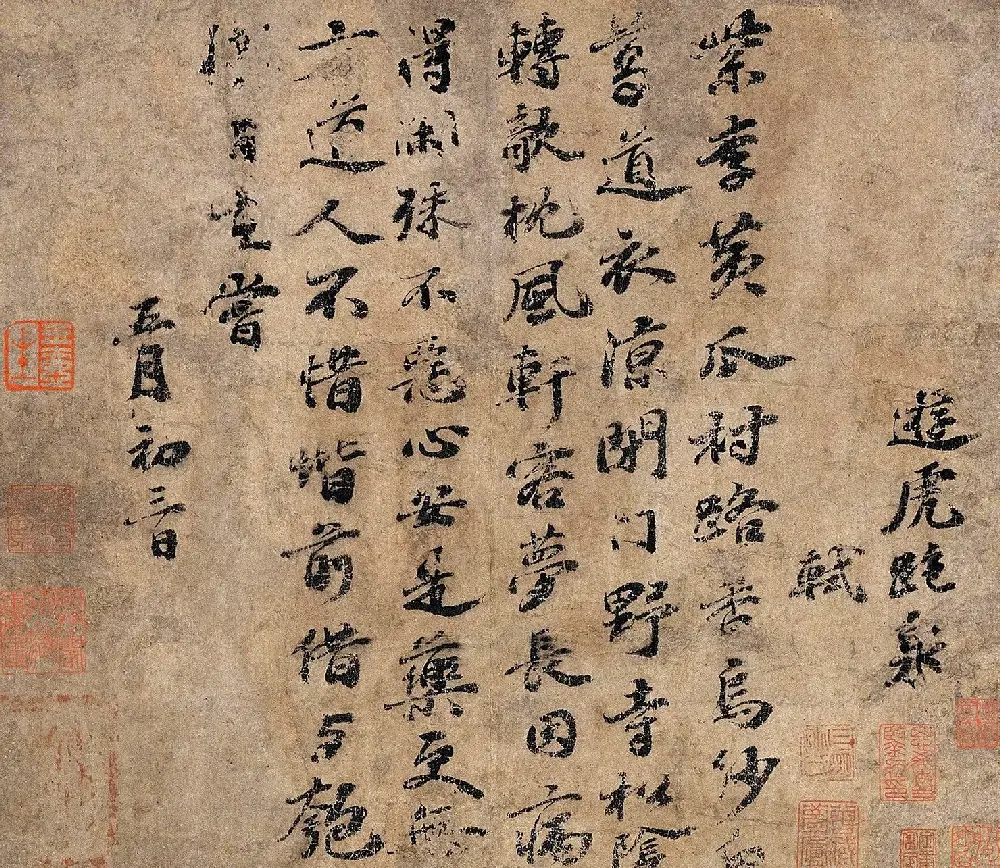 遊虎跑泉
軾
紫李黄瓜村路香烏紗
葛道衣涼閉门野寺松陰
轉欹枕風軒客夢長因病
得闲殊不惡心安是藥更無
方道人不惜堦前借与匏
自嘗
五月初三日